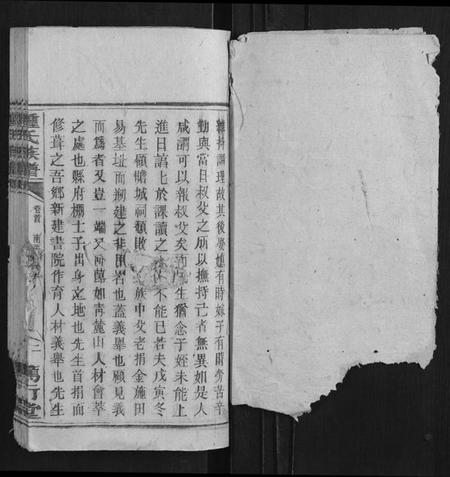 維持調理故其後婆媳有時嫁子有時旁苦辛
勤與當日叔父之所以撫持亡者無異如是人
咸謂可以報叔父矣而先生猶念子姪未能上
進日諄諄於課讀之不能已若夫戊寅冬
先生領贛城祠頹敗族中父老捐金施田
易基址而捌建之非困者也蓋義舉也顧見義
而為者又豈一端又而萬如青麓山人材會萃
之處也縣府棚士子出身之地也先生首捐而
修葺之吾鄉新建書院作育人材義舉也先生
鍾氏族譜
卷首
二
萬行堂